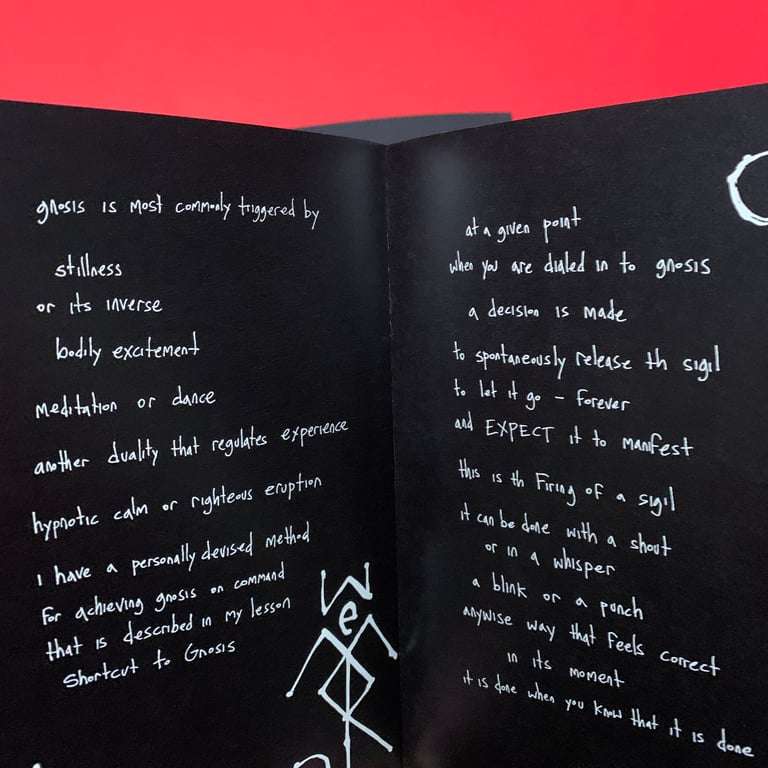 gnosis is most commonly triggered by
stillness
or its inverse
bodily excitement
meditation or dance
another duality that regulates experience
hypnotic calm or righteous eruption
i have a personally devised method
for achieving gnosis on command
that is described in my lesson
Shortcut to Gnosis
at a given point
when you are dialed in to gnosis
a decision is made
to spontaneously release th sigil
to let it go – forever
and EXPECT it to manifest
this is th Firing of a sigil
it can be done with a shout
or in a whisper
a blink or a punch
anywise way that feels correct
in its moment
it is done when you know that it is done